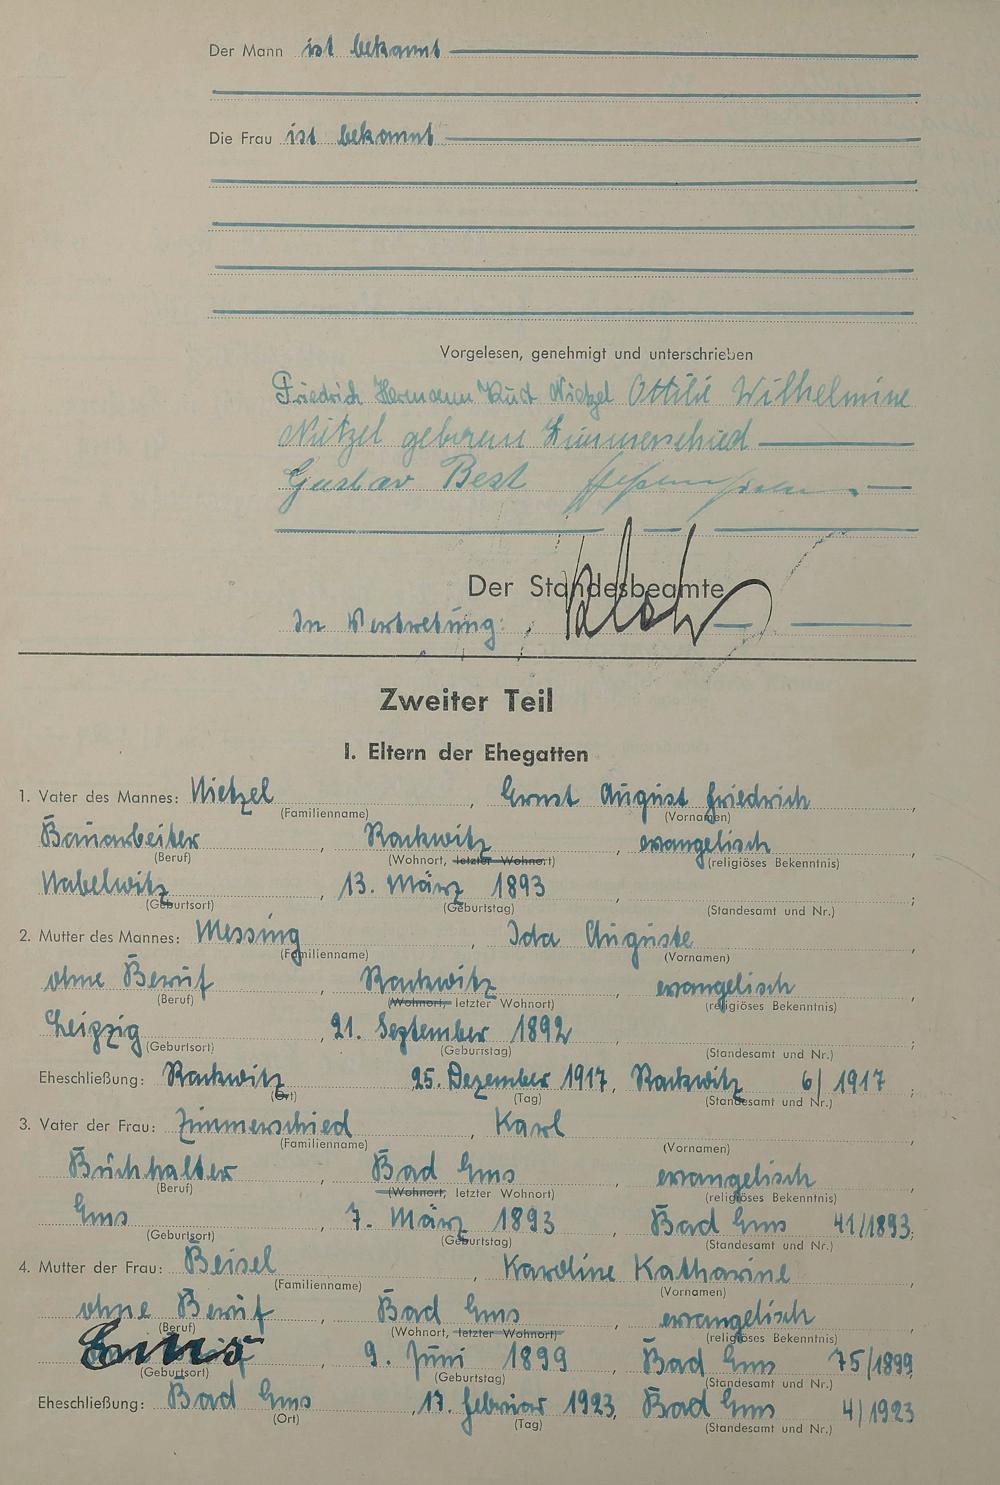 Der Mann ist bekannt
Die Frau ist bekannt
Vorgelesen, genehmigt und unterschrieben
Friedrich Hermann Kurt Nietzel Ottilie Wilhelmine
Nietzel geborene Zimmerschied
Gustav Best
Der Standesbeamte
In Vertretung:
Zweiter Teil
I. Eltern der Ehegatten
1. Vater des Mannes: Nietzel, Ernst August Friedrich,
(Familienname) (Vornamen)
Bauarbeiter, Rackwitz, evangelisch,
(Beruf) (Wohnort, letzter Wohnort) (religiöses Bekenntnis)
Nabelwitz, 13. März 1893, ;
(Geburtsort) (Geburtstag) (Standesamt und Nr.)
2. Mutter des Mannes: Messing, Ida Auguste,
(Familienname) (Vornamen)
ohne Beruf, Rackwitz, evangelisch,
(Beruf) (Wohnort, letzter Wohnort) (religiöses Bekenntnis)
Leipzig, 21. September 1892, ;
(Geburtsort) (Geburtstag) (Standesamt und Nr.)
Eheschließung: Rackwitz 25. Dezember 1917, Rackwitz 6/1917;
(Ort) (Tag) (Standesamt und Nr.)
3. Vater der Frau: Zimmerschied, Karl,
(Familienname) (Vornamen)
Buchhalter, Bad Ems, evangelisch,
(Beruf) (Wohnort, letzter Wohnort) (religiöses Bekenntnis)
Ems, 7. März 1893, Bad Ems 41/1893;
(Geburtsort) (Geburtstag) (Standesamt und Nr.)
4. Mutter der Frau: Beisel, Karoline Katharine,
(Familienname) (Vornamen)
ohne Beruf, Bad Ems, evangelisch,
(Beruf) (Wohnort, letzter Wohnort) (religiöses Bekenntnis)
Ems, 9. Juni 1899, Bad Ems 75/1899
(Geburtsort) (Geburtstag) (Standesamt und Nr.)
Eheschließung: Bad Ems, 17. Februar 1923, Bad Ems 4/1923
(Ort) (Tag) (Standesamt und Nr.)